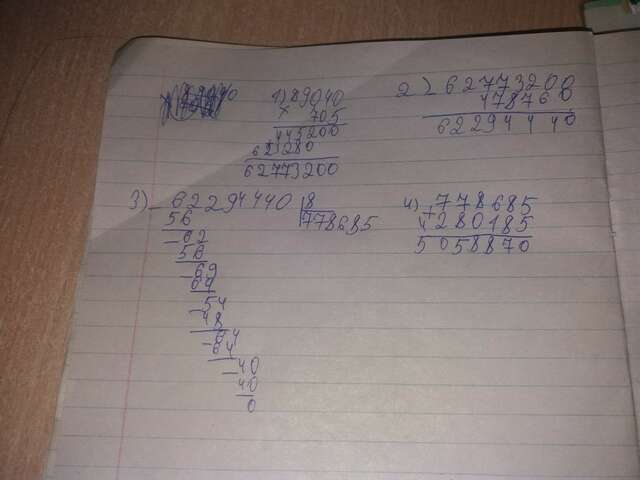 1) 89040
× 705
445200
623280
62773200
2) - 62773200
478760
62294440
3) - 62294440 | 8
56 778685
- 62
56
- 69
64
- 54
48
- 64
64
- 40
40
0
4) + 778685
4280185
5058870